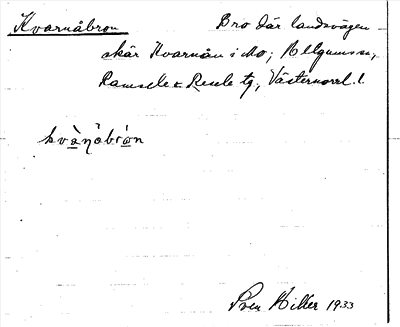 Kvarnåbron Bro där landsvägen
skär Kvarnån i Mo,
Ramsele & Resele tg., Västernorrl. l.
kvànåbrón
Sven Hiller 1933